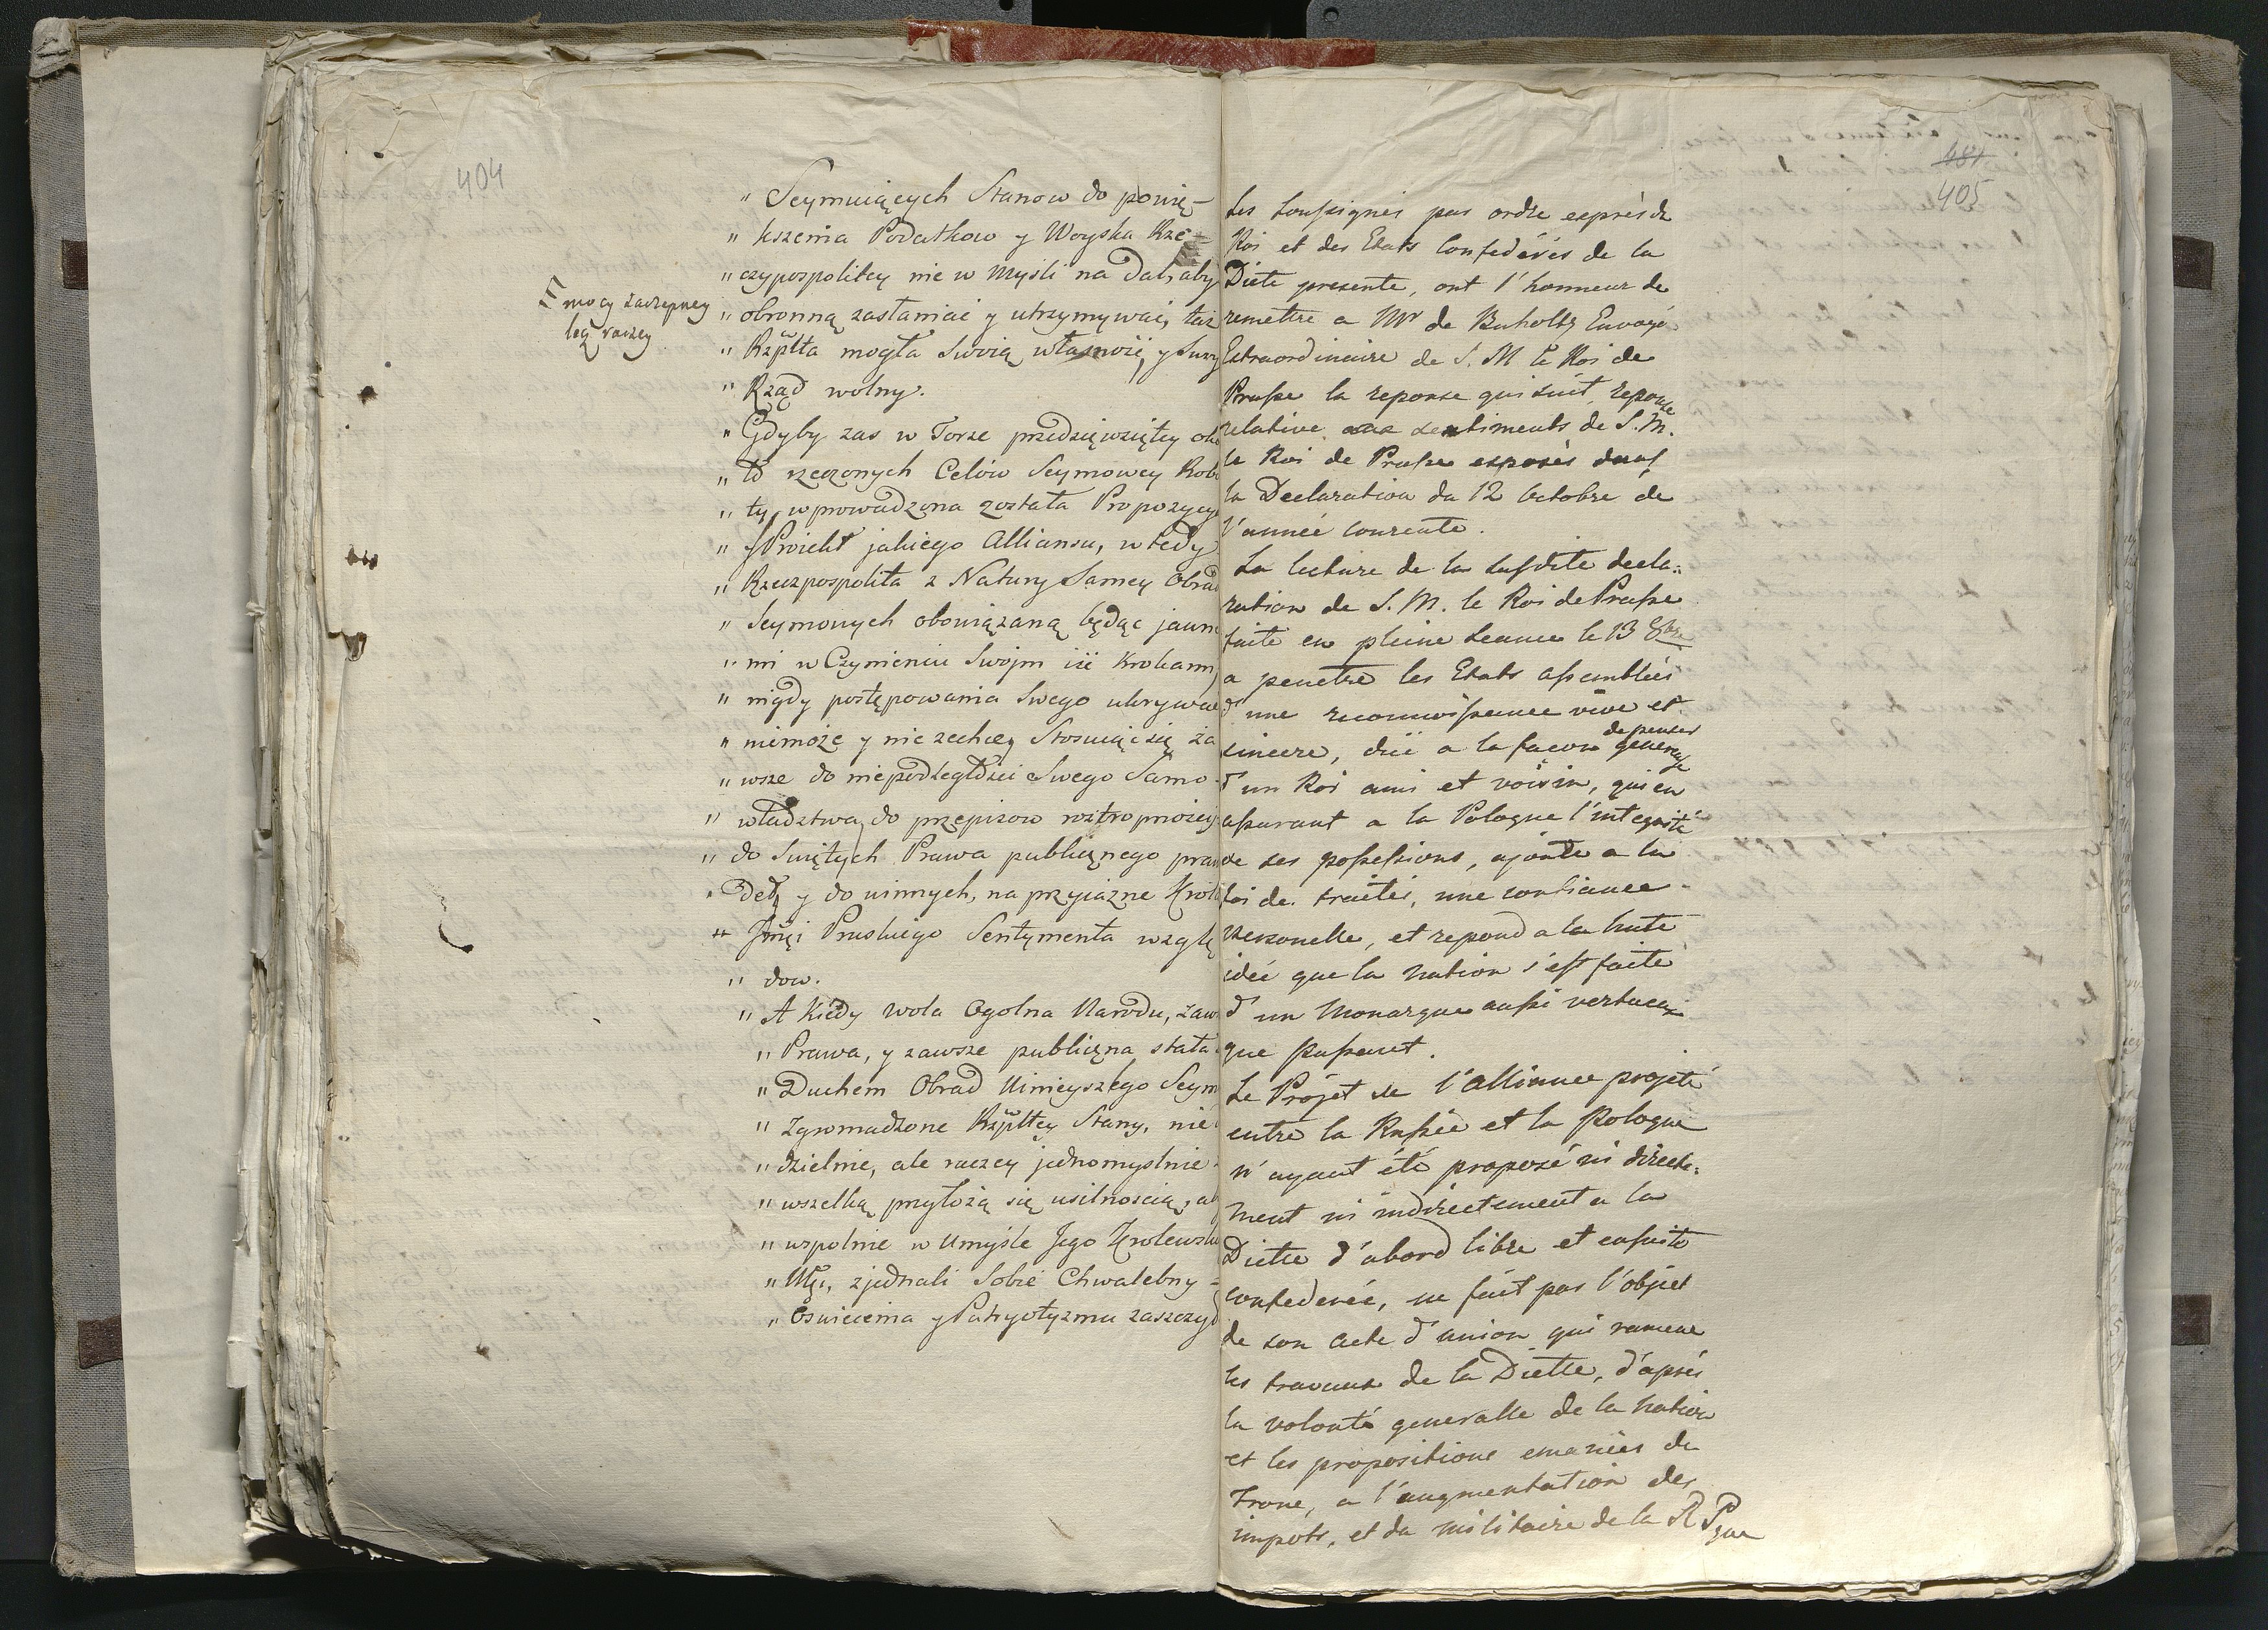 404
" Seymuiących Stanow do powię-
" kszenia Podatkow y Woyska Rze-
" czypospolitey nie w myśli na dał, aby
mocy zaczepney
" obronną zasłaniać y utrzymywać, taż
lecz raczey
" Rzplta mogła Swoią własność, y Swoy
" Rząd wolny.
" Gdyby zas w Torze przedsięwziętey
" to rzeczonych Celów Seymowey Robo
" ty, wprowadzona została Propozycya
" y Proiekt jakiego Alliansu, w tedy
" Rzeczpospolita z Natury Samey Obrad
" Seymowych obowiązaną będąc jawne
" mi w Czynieniu Swójm iść Krokami,
" nigdy postępowania Swego ukrywać
" niemoże y nie zechcę Stosuiąc się za
" wsze do niepodległości Swego Samo-
" władztwa, do przepisow roztropności
" do Swiętych Prawa publicznego praw
" deł, y do winnych, na przyiazne Krola
" Jmci Pruskiego Sentymenta wzglę
" dow.
" A Kiedy wola Ogolna Narodu, zaw
" Prawa, y zawsze publiczna, stała
" Duchem Obrad Ninieyszego Seym
" Zgromadzone Rzpltey Stany, nie
" dzielnie, ale raczey jednomyslnie
" wszelką przyłożą się usilnoscią, ab
" wspolnie w Umyśle Jego Krolewsk
" Mci, zjednali Sobie Chwalebny-
" Oswiecenia y Patryotyzmu zaszczyt
481
405
Les Soussignés par ordre exprés du
Roi et des Etats Confedérés de la
Diete presente, ont l'honneur de
remettre a Mr de Buholtz Envoyé
Extraordinaire de S. M le Roi de
Prusse la reponse qui suit, reponse
relative aux sentiments de S. M.
le Roi de Prusse exposés dans
la Declaration du 12 Octobre de
l'année courente.
La lecture de la susdite decla=
ration de S. M. le Roi de Prusse
faite en pleine seance le 13 8bre
a penetré les Etats assemblées
d'une reconnoissance vive et
sincere, düe a la facon de penser genereuse
d'un Roi ami et voisin, qui en
assurant a la Pologne l'integrité
de ses possessions, ajoute a la
foi de traités, une confiance
personelle, et repond a la hute
idée que la nation s'est faite
d'un Monarque aussi vertueux
que puissant.
Le Projet de l'alliance projeté
entre la Russie et la Pologne
n'ayant été proposé ni directe=
ment ni indirectement a la
Diette d'abord libre et ensuite
confederée, ne fait pas l'objet
de son acte d'union qui ramene
les travaux de la Diette, d'aprés
la volonté generalle de la nation
et les propositions emanées du
Trone, a l'augmentation des
impots, et du militaire de la R Pque